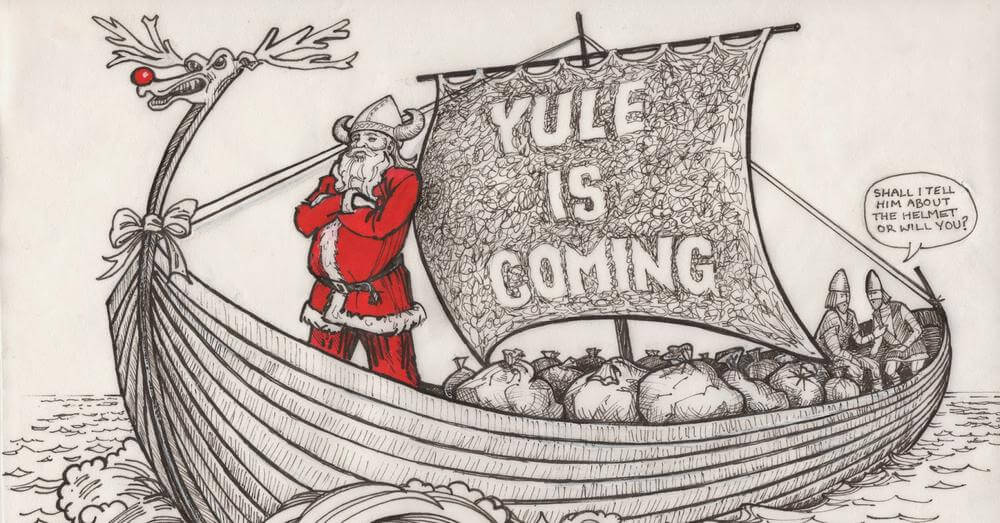 YULE
IS
COMING
SHALL I TELL
HIM ABOUT
THE HELMET
OR WILL YOU?